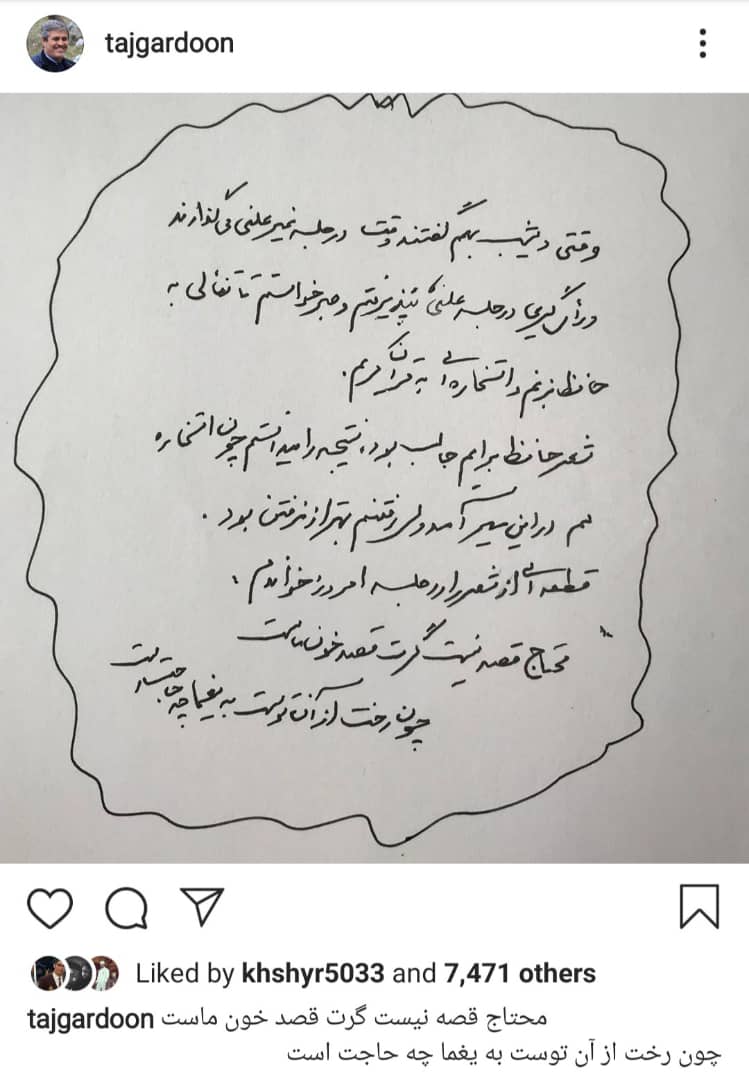 tajgardoon
وقتی دیشب بهم گفتند وقت در جلسه غیر علنی می گذارند
و رأی گیری در جلسه علنی نپذیرفتم و صبر خواستم تا تفألی به
حافظ بزنم و استخاره ای به قرآن کریم.
شعر حافظ برایم جالب بود، نتیجه را میدانستم چون استخاره
هم در این مسیر آمد ولی رفتنم بهتر از نرفتن بود .
قطعه ای از شعر را در جلسه امروز خواندم :
محتاج قصه نیست گرت قصد خون ماست
چون رخت از آن توست به یغما چه حاجت است
Liked by khshyr5033 and 7,471 others
tajgardoon محتاج قصه نیست گرت قصد خون ماست
چون رخت از آن توست به یغما چه حاجت است